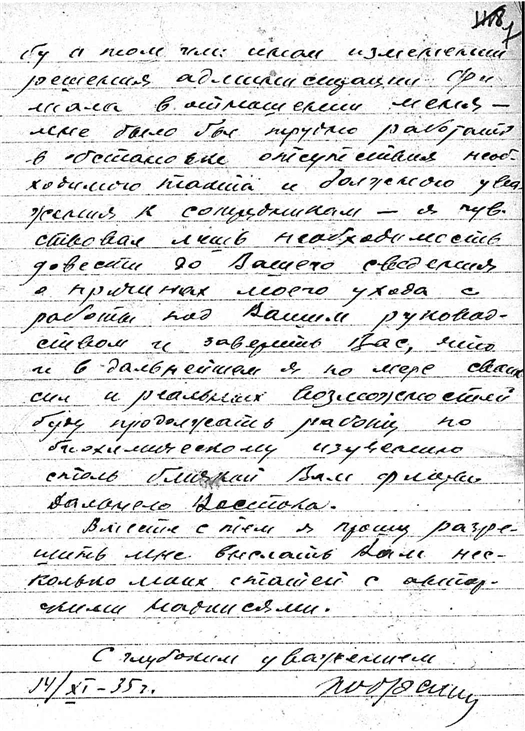 бу о том или ином изменении
решения администрации фи
лиала в отношении меня —
мне было бы трудно работать
в обстановке отсутствия необ-
ходимого такта и должного ува
жения к сотрудникам — я чув-
ствовал лишь необходимость
довести до Вашего сведения
о причинах моего ухода с
работы под Вашим руковод-
ством и заверить Вас, что
и в дальнейшем я по мере своих
сил и реальных возможностей
буду продолжать работу по
биохимическому изучению
столь близкой Вам флоры
Дальнего Востока.
Вместе с тем я прошу разре-
шить мне выслать Вам нес-
колько моих статей с автор-
скими надписями.
С глубоким уважением
14/XI-35г.